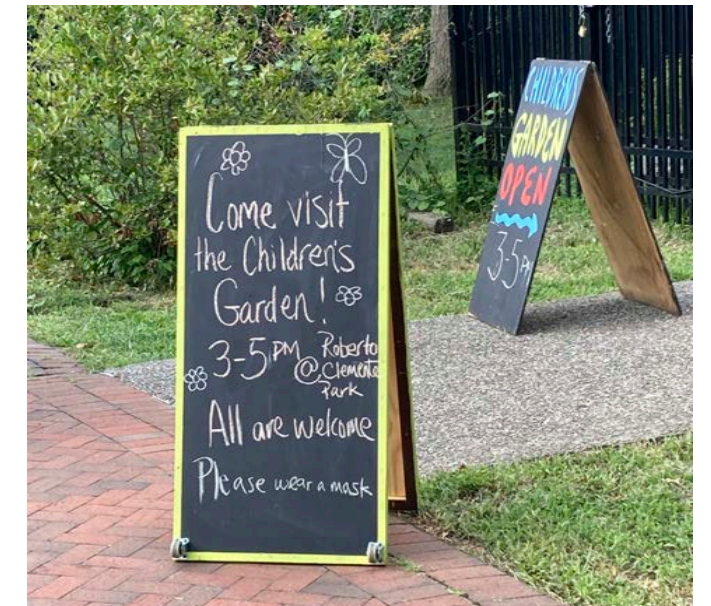 Come visit
the Children's
Garden!
3-5 PM @ Roberto
Clemente
Park
All are welcome
Please wear a mask
CHILDREN'S
GARDEN
OPEN
3-5PM